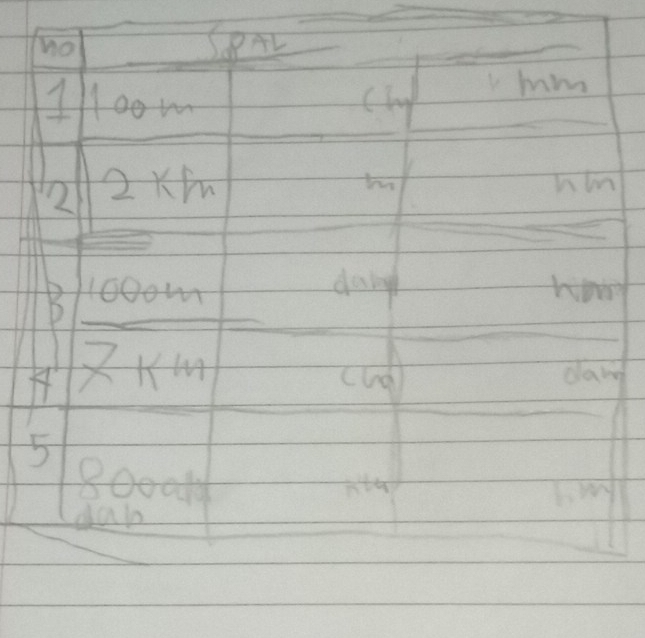 no SoAL
1 100m cm mm
2 2 Km m hm
3 1000m dam hm
4 7 Km cm dam
5 800
dam hm